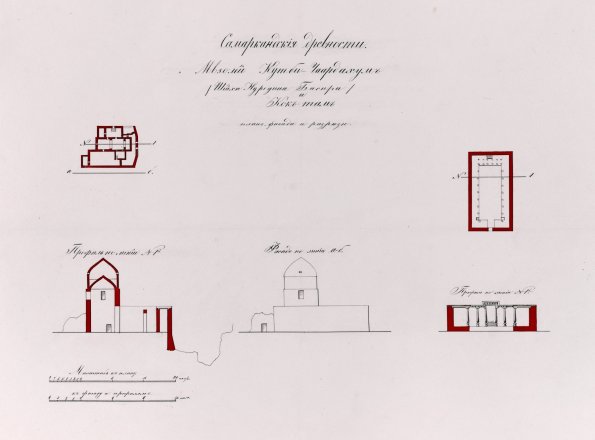 Самаркандскія древности.
Мазаръ Кутби-Чаардахумъ
/ Шейхъ Нуредина Басири /
и
Кокъ-ташъ
планъ, фасадъ и разрѣзы.
№ 1
а б.
№ 1
Профиль по линіи № 1º
Фасадъ по линіи а-б.
Профиль по линіи № 1º
Масштабъ къ плану
къ фасаду и профилямъ